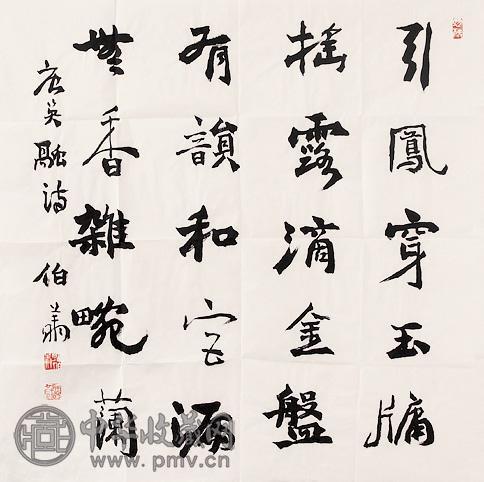 引鳳穿玉牖
摇露滴金盤
有韻和宫漏
無香雜畹蘭
唐吴融诗 伯萧
中华收藏网
www.pmv.cn